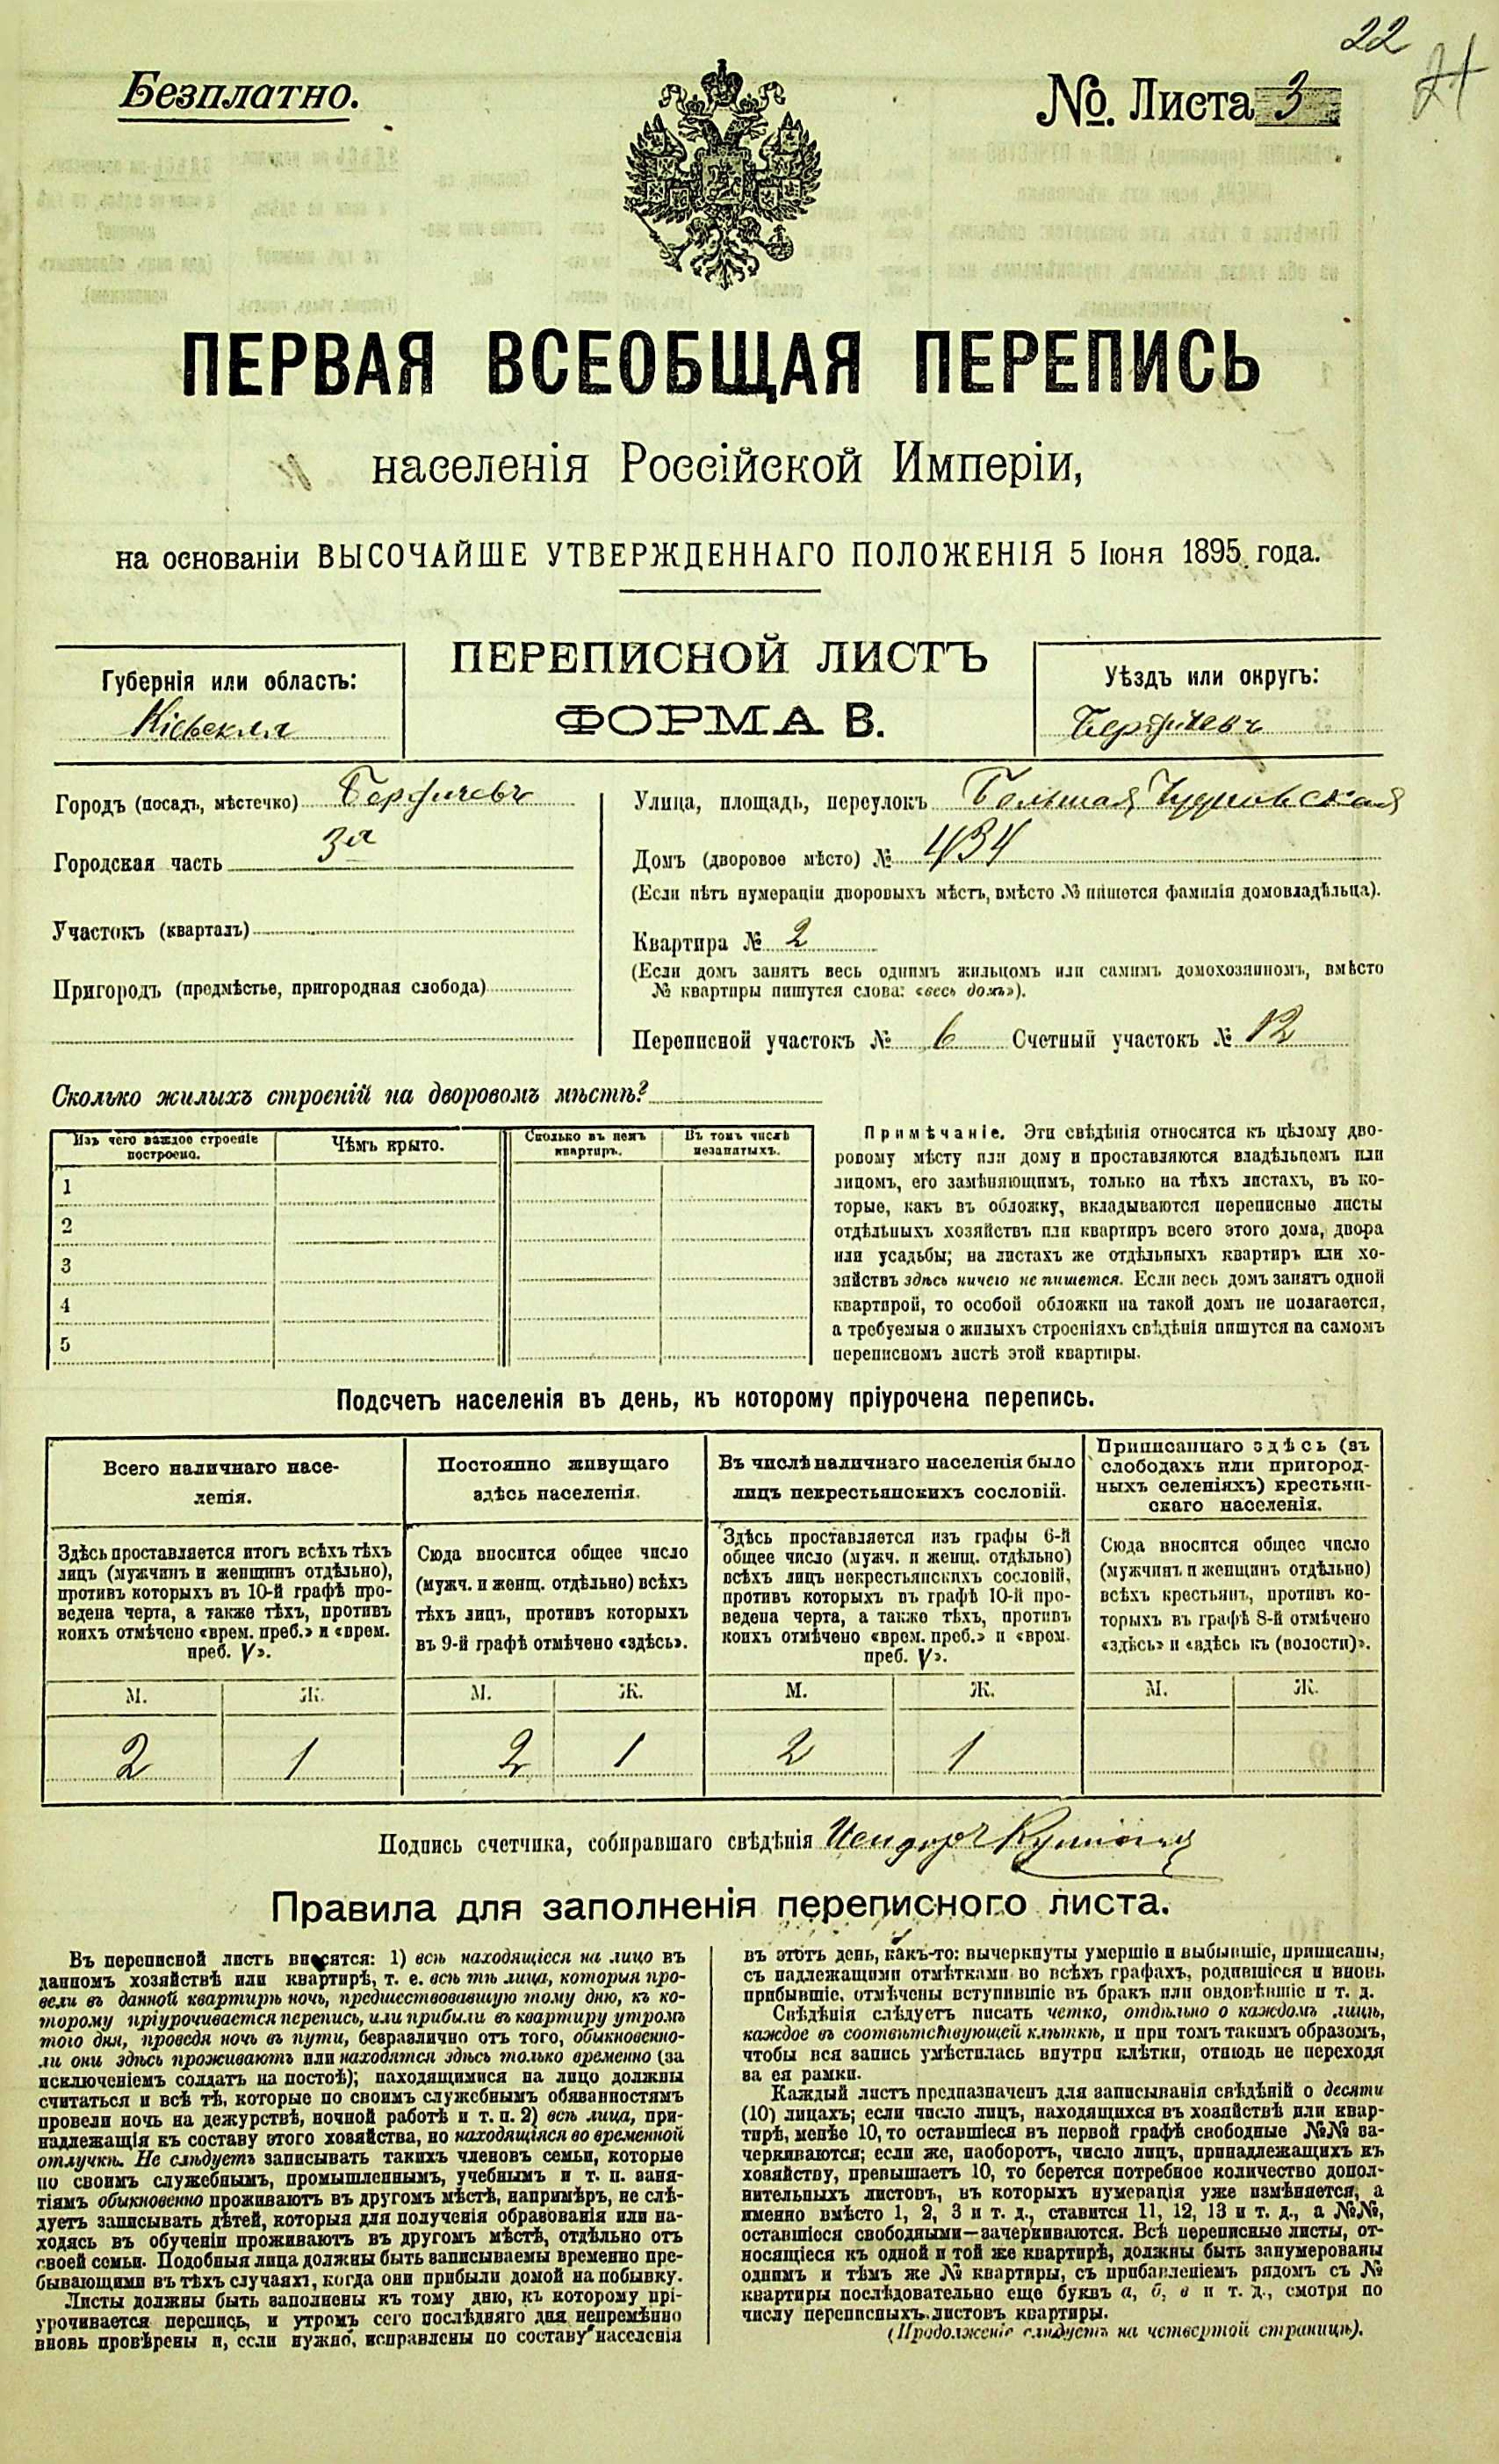 22
21
Безплатно.
№. Листа 3
ПЕРВАЯ ВСЕОБЩАЯ ПЕРЕПИСЬ
населенія Россійской Имперіи,
на основаніи ВЫСОЧАЙШЕ УТВЕРЖДЕННАГО ПОЛОЖЕНІЯ 5 Іюня 1895 года.
ПЕРЕПИСНОЙ ЛИСТЪ
ФОРМА В.
Губернія или область:
Кіевская
Уѣздъ или округъ:
Бердичевъ
Городъ (посадъ, мѣстечко) Бердичевъ
Городская часть 3я
Участокъ (кварталъ)
Пригородъ (предмѣстье, пригородная слобода)
Улица, площадь, переулокъ Большая Чудновская
Домъ (дворовое мѣсто) № 434
(Если нѣтъ нумераціи дворовыхъ мѣстъ, вмѣсто № пишется фамилія домовладѣльца).
Квартира № 2
(Если домъ занятъ весь однимъ жильцомъ или самимъ домохозяиномъ, вмѣсто
№ квартиры пишутся слова: «весь домъ»).
Переписной участокъ № 6 Счетный участокъ № 12
Сколько жилыхъ строеній на дворовомъ мѣстѣ?
Изъ чего каждое строеніе
построено.
Чѣмъ крыто.
Сколько въ немъ
квартиръ.
Въ томъ числѣ
незанятыхъ.
1
2
3
4
5
Примѣчаніе. Эти свѣдѣнія относятся къ цѣлому дво-
ровому мѣсту или дому и проставляются владѣльцемъ или
лицомъ, его замѣняющимъ, только на тѣхъ листахъ, въ ко-
торые, какъ въ обложку, вкладываются переписные листы
отдѣльныхъ хозяйствъ или квартиръ всего этого дома, двора
или усадьбы; на листахъ же отдѣльныхъ квартиръ или хо-
зяйствъ здѣсь ничего не пишется. Если весь домъ занятъ одной
квартирой, то особой обложки на такой домъ не полагается,
а требуемыя о жилыхъ строеніяхъ свѣдѣнія пишутся на самомъ
переписномъ листѣ этой квартиры.
Подсчетъ населенія въ день, къ которому пріурочена перепись.
Всего наличнаго насе-
ленія.
Постоянно живущаго
здѣсь населенія.
Въ числѣ наличнаго населенія было
лицъ некрестьянскихъ сословій.
Приписаннаго здѣсь (въ
слободахъ или пригород-
ныхъ селеніяхъ) крестьян-
скаго населенія.
Здѣсь проставляется итогъ всѣхъ тѣхъ
лицъ (мужчинъ и женщинъ отдѣльно),
противъ которыхъ въ 10-й графѣ про-
ведена черта, а также тѣхъ, противъ
коихъ отмѣчено «врем. преб.» и «врем.
преб. V».
Сюда вносится общее число
(мужч. и женщ. отдѣльно) всѣхъ
тѣхъ лицъ, противъ которыхъ
въ 9-й графѣ отмѣчено «здѣсь».
Здѣсь проставляется изъ графы 6-й
общее число (мужч. и женщ. отдѣльно)
всѣхъ лицъ некрестьянскихъ сословій,
противъ которыхъ въ графѣ 10-й про-
ведена черта, а также тѣхъ, противъ
коихъ отмѣчено «врем. преб.» и «врем.
преб. V».
Сюда вносится общее число
(мужчинъ и женщинъ отдѣльно)
всѣхъ крестьянъ, противъ ко-
торыхъ въ графѣ 8-й отмѣчено
«здѣсь» и «здѣсь къ (волости)».
М. Ж. М. Ж. М. Ж. М. Ж.
2 1 2 1 2 1
Подпись счетчика, собиравшаго свѣдѣнія
Правила для заполненія переписного листа.
Въ переписной листъ вносятся: 1) всѣ находящіеся на лицо въ
данномъ хозяйствѣ или квартирѣ, т. е. всѣ тѣ лица, которыя про-
вели въ данной квартирѣ ночь, предшествовавшую тому дню, къ ко-
торому пріурочивается перепись, или прибыли въ квартиру утромъ
того дня, проведя ночь въ пути, безразлично отъ того, обыкновенно-
ли они здѣсь проживаютъ или находятся здѣсь только временно (за
исключеніемъ солдатъ на постоѣ); находящимися на лицо должны
считаться и всѣ тѣ, которые по своимъ служебнымъ обязанностямъ
провели ночь на дежурствѣ, ночной работѣ и т. п. 2) всѣ лица, при-
надлежащія къ составу этого хозяйства, но находящіяся во временной
отлучкѣ. Не слѣдуетъ записывать такихъ членовъ семьи, которые
по своимъ служебнымъ, промышленнымъ, учебнымъ и т. п. заня-
тіямъ обыкновенно проживаютъ въ другомъ мѣстѣ, напримѣръ, не слѣ-
дуетъ записывать дѣтей, которыя для полученія образованія или на-
ходясь въ обученіи проживаютъ въ другомъ мѣстѣ, отдѣльно отъ
своей семьи. Подобныя лица должны быть записываемы временно пре-
бывающими въ тѣхъ случаяхъ, когда они прибыли домой на побывку.
Листы должны быть заполнены къ тому дню, къ которому прі-
урочивается перепись, и утромъ сего послѣдняго дня непремѣнно
вновь провѣрены и, если нужно, исправлены по составу населенія
въ этотъ день, какъ-то: вычеркнуты умершіе и выбывшіе, приписаны,
съ надлежащими отмѣтками во всѣхъ графахъ, родившіеся и вновь
прибывшіе, отмѣчены вступившіе въ бракъ или овдовѣвшіе и т. д.
Свѣдѣнія слѣдуетъ писать четко, отдѣльно о каждомъ лицѣ,
каждое въ соотвѣтствующей клѣткѣ, и при томъ такимъ образомъ,
чтобы вся запись умѣстилась внутри клѣтки, отнюдь не переходя
за ея рамки.
Каждый листъ предназначенъ для записыванія свѣдѣній о десяти
(10) лицахъ; если число лицъ, находящихся въ хозяйствѣ или квар-
тирѣ, менѣе 10, то оставшіеся въ первой графѣ свободные №№ за-
черкиваются; если же, наоборотъ, число лицъ, принадлежащихъ къ
хозяйству, превышаетъ 10, то берется потребное количество допол-
нительныхъ листовъ, въ которыхъ нумерація уже измѣняется, а
именно вмѣсто 1, 2, 3 и т. д., ставится 11, 12, 13 и т. д., а №№,
оставшіеся свободными—зачеркиваются. Всѣ переписные листы, от-
носящіеся къ одной и той же квартирѣ, должны быть занумерованы
однимъ и тѣмъ же № квартиры, съ прибавленіемъ рядомъ съ №
квартиры послѣдовательно еще буквъ а, б, в и т. д., смотря по
числу переписныхъ листовъ квартиры.
(Продолженіе слѣдуетъ на четвертой страницѣ).